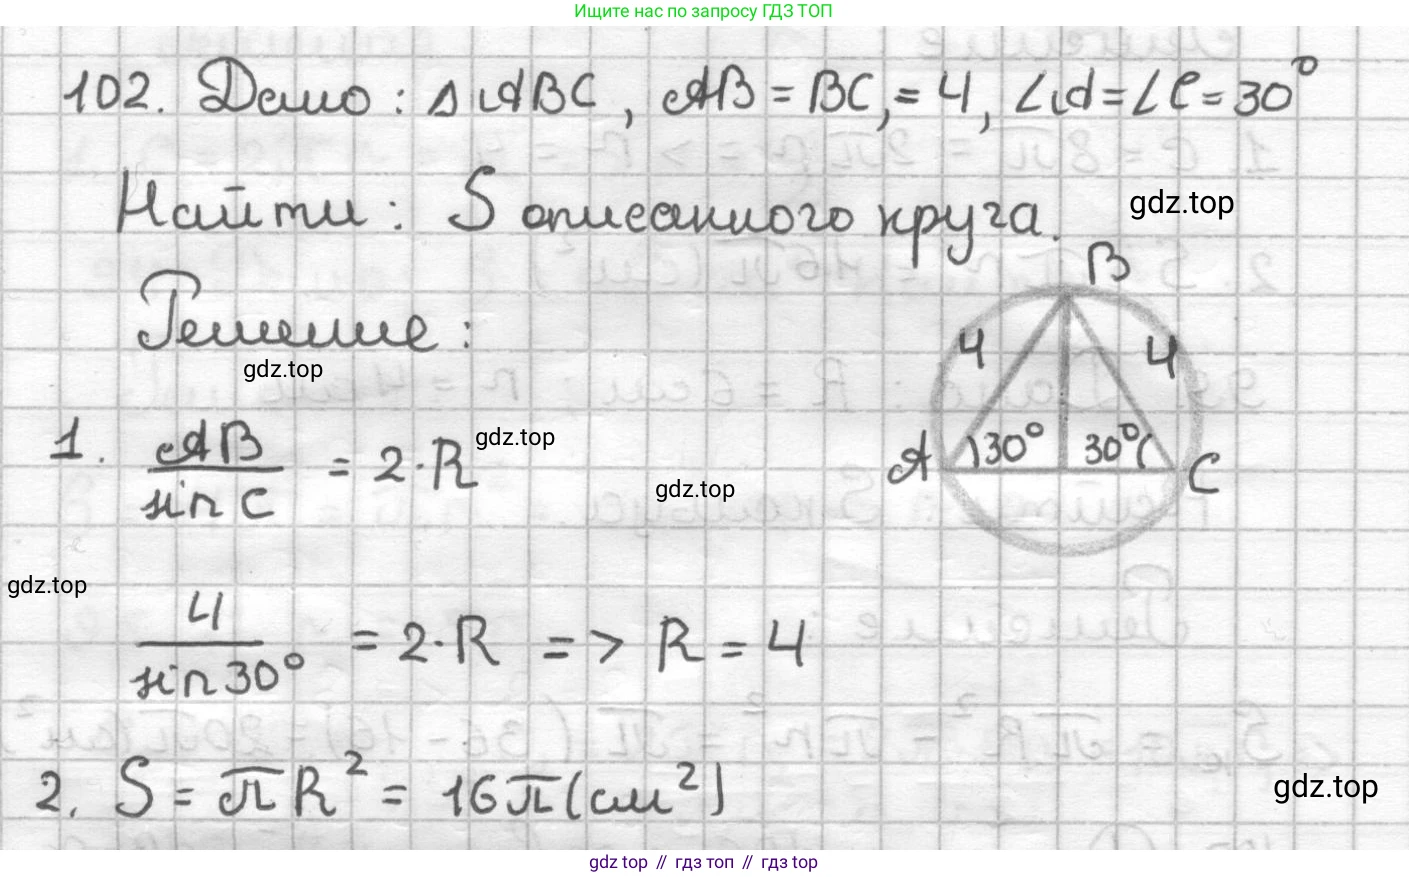 Ищите нас по запросу ГДЗ ТОП
102. Дано: △ABC, AB = BC, = 4, ∠A = ∠C = 30°
Найти: S описанного круга.
gdz.top
Решение:
gdz.top
B
4 4
30° 30°
A C
1. AB/sin C = 2·R
gdz.top
gdz.top
gdz.top
4/sin 30° = 2·R => R = 4
2. S = πR² = 16π (см²)
gdz.top
gdz top // гдз топ // gdz top